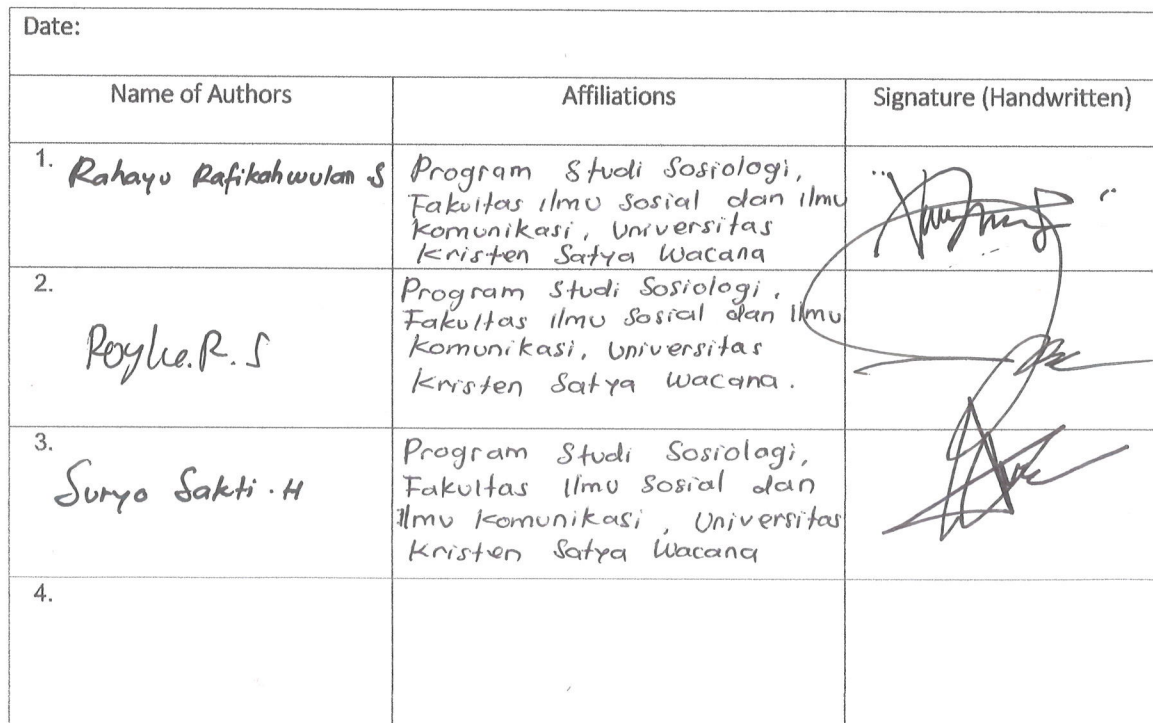 Date:
Name of Authors
Affiliations
Signature (Handwritten)
1.
Rahayu Rafikahwulan S
Program Studi Sosiologi,
Fakultas Ilmu Sosial dan Ilmu
Komunikasi, Universitas
Kristen Satya Wacana
2.
Royke.R.S
Program Studi Sosiologi,
Fakultas Ilmu Sosial dan Ilmu
Komunikasi, Universitas
Kristen Satya Wacana.
3.
Suryo Sakti.H
Program Studi Sosiologi,
Fakultas Ilmu Sosial dan
Ilmu Komunikasi, Universitas
Kristen Satya Wacana
4.